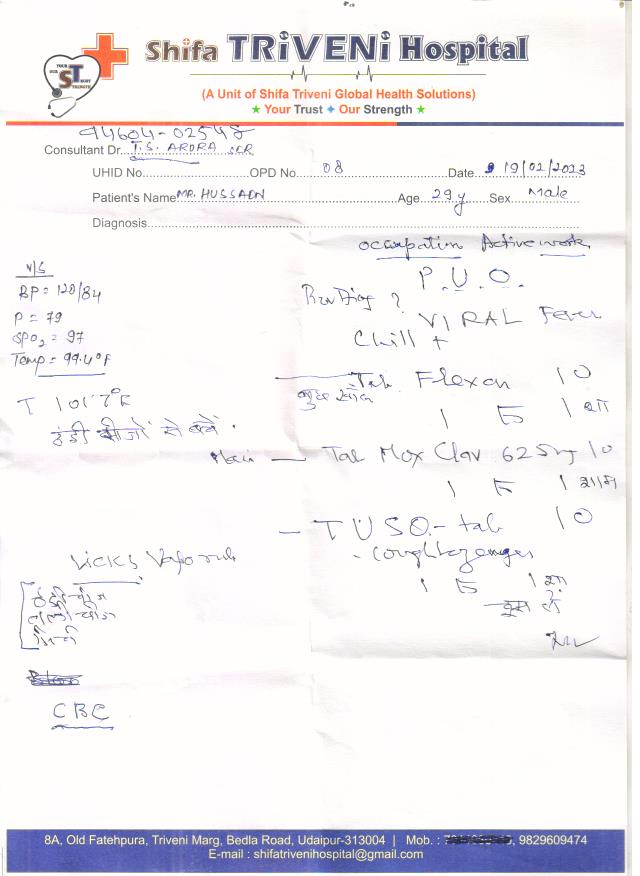 YOUR TRUST
OUR STRENGTH
ST
Shifa TRiVENi Hospital
(A Unit of Shifa Triveni Global Health Solutions)
★ Your Trust ✦ Our Strength ★
94604-02548
Consultant Dr. T.S. ARORA SAR
UHID No. OPD No 08 Date 19/02/2023
Patient's Name MR. HUSSAON Age 29y Sex Male
Diagnosis
Occupation Active work
V/S
BP = 120/84
P = 79
SPO2 = 97
Temp = 99.4°F
P.U.O.
?
VIRAL Fever
Chill +
Tab. Flexon 10
1 1
T 101.7°F
ठंडी चीजों से बचें.
Tab Mox Clav 625mg 10
1 1 शाम
TUSO - tab 10
- Cough lozenges
1 1
चूस लें
Vicks Vaporub
CBC
8A, Old Fatehpura, Triveni Marg, Bedla Road, Udaipur-313004 | Mob. : , 9829609474
E-mail : shifatrivenihospital@gmail.com